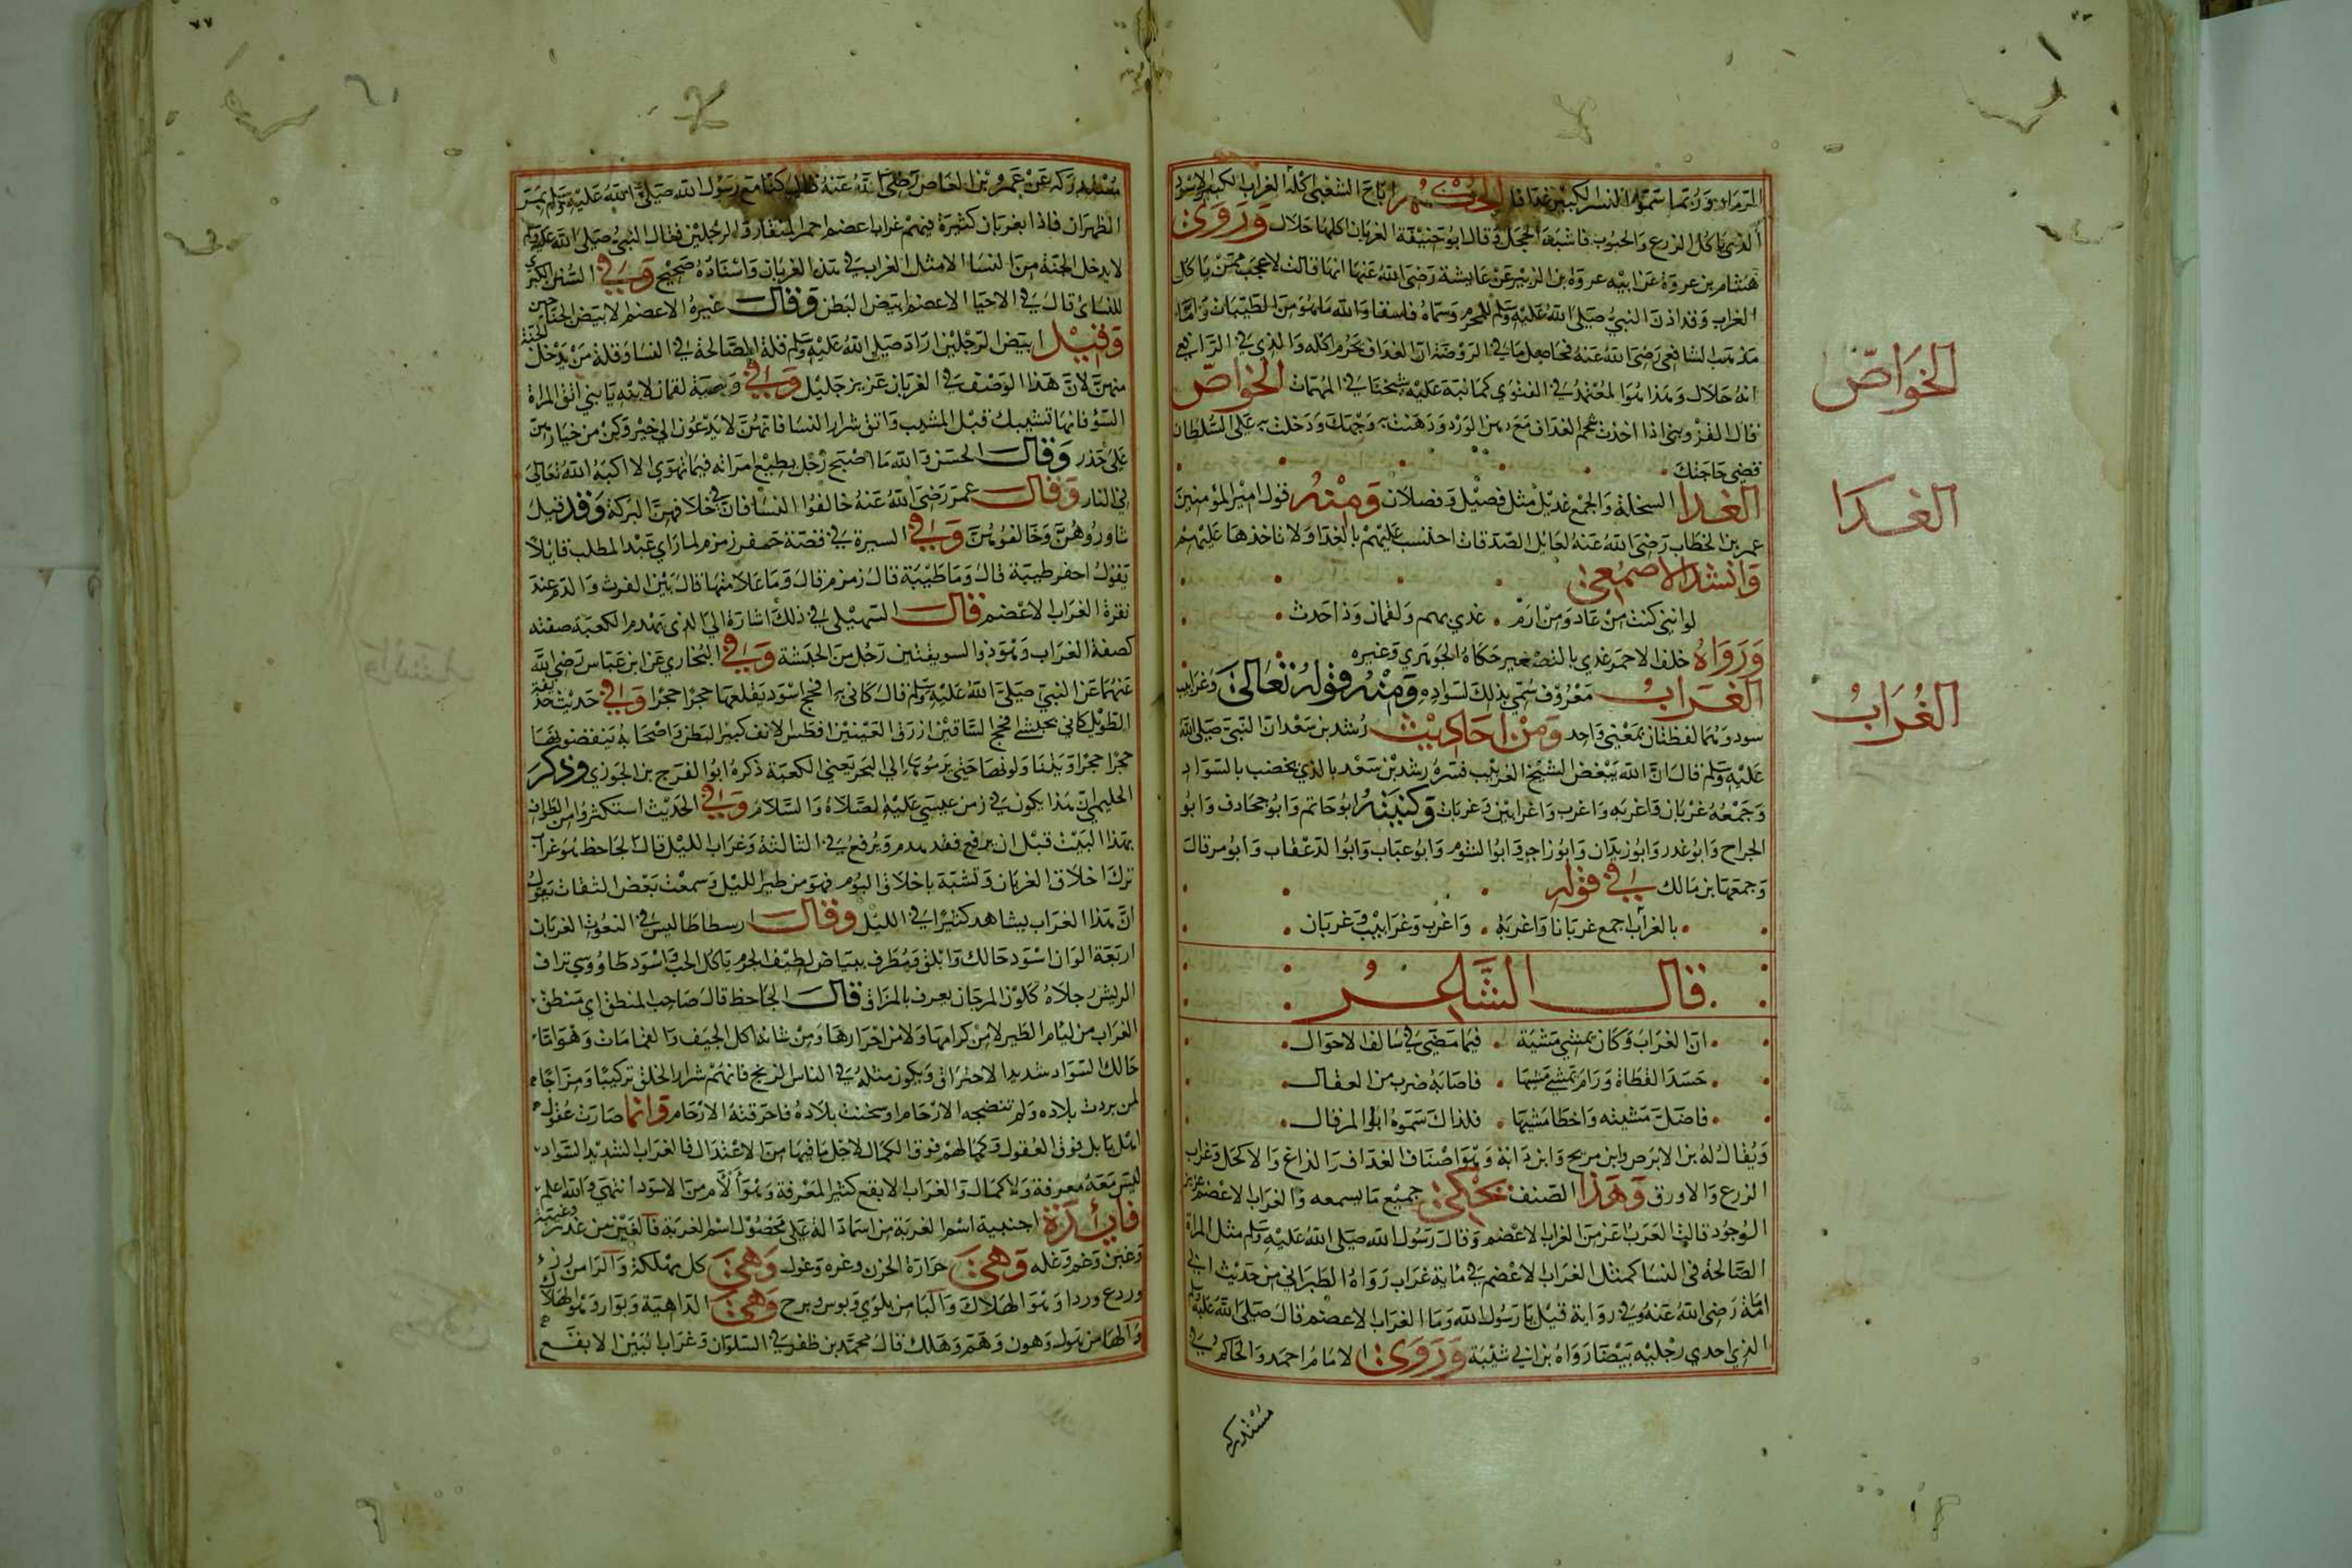 الرماد وربما سموا النسر الكبير غدافا الحكم اباح الشعبي اكله الغراب الكبير الاسود
الذي ياكل الزرع والحبوب فاشبه الحجل وقال ابو حنيفة الغربان كلها حلال وروى
هشام بن عروة عن ابيه عروة بن الزبير عن عايشة رضي الله عنها انها قالت لاعجب ممن ياكل
الغراب وقد اذن النبي صلى الله عليه وسلم للمحرم وسماه فاسقا والله ما هو من الطيبات واما
مذهب الشافعي رضي الله عنه فحاصل ما في الروضة ان الغداف يحرم اكله والذي في الرافعي
انه حلال وهذا هو المعتمد في الفتوي كما نبه عليه شيخنا في المهمات الخواص
قال القزويني اذا اخذت شحم الغداف مع دهن الورد ودهنت به وجهك ودخلت به على السلطان
قضى حاجتك
الغدا السخلة والجمع غديل مثل فصيل وفصلان ومنه قول امير المومنين
عمر بن الخطاب رضي الله عنه لعامل الصدقات احتسب عليهم بالغدا ولا تاخذها عليهم
وانشد الاصمعي
لو انني كنت من عاد ومن ارم غدي بهم ولقمان وذا حدث
ورواه خلف الاحمر غدي بالتصغير حكاه الجوهري وغيره
الغراب معروف سمي بذلك لسواده ومنه قوله تعالى وغرابيب
سود وهما لفظتان بمعنى واحد ومن احاديث رشد بن سعد ان النبي صلى الله
عليه وسلم قال ان الله يبغض الشيخ الغربيب فسره رشد بن سعد بالذي يخضب بالسواد
وجمعه غربان واغربه واغرب وغرابين وغربات وكنيته ابو حاتم وابو جحادف وابو
الجراح وابو غدر وابو زيدان وابو زاجر وابو الشوم وابو عباب وابوا القعقاب وابو مرقال
وجمعها بن مالك في قوله
بالغراب اجمع غربانا واغربة واغرب وغرابيب وغربان
قال الشاعر
ان الغراب وكان يمشي مشية فيما مضى في سالف الاحوال
حسد القطاة ورام يمشي مشيها فاصابه ضرب من العقال
فاضل مشيته واخطا مشيها فلذاك سموه ابا المرقال
ويقال له بن الابرص وابن بريح وابن داية وهو اصناف الغداف والزاغ والاكحل وغراب
الزرع والاورق وهذا الصنف يحكي جميع ما يسمعه والغراب الاعصم عزيز
الوجود قالت العرب اعز من الغراب الاعصم وقال رسول الله صلى الله عليه وسلم مثل المراة
الصالحة في النسا كمثل الغراب الاعصم في ماية غراب رواه الطبراني من حديث ابي
امامة رضي الله عنه وفي رواية قيل يا رسول الله وما الغراب الاعصم قال صلى الله عليه وسلم
الذي احدي رجليه بيضا رواه بن ابي شيبة وروى الامام احمد والحاكم في
مستدركه
الخواص
الغدا
الغراب
مستدركه عن عمرو بن العاص رضى الله عنه قال كنا مع رسول الله صلى الله عليه وسلم بمر
الظهران فاذا بغربان كثيرة فيهم غراب اعصم احمر المنقار والرجلين فقال النبي صلى الله عليه وسلم
لا يدخل الجنة من النسا الا مثل الغراب في هذا الغربان واسناده صحيح وفي السنن الكبرى
للنسائ قال في الاحيا الاعصم ابيض البطن وقال غيره الاعصم الابيض الجناحين
وقيل ابيض الرجلين اراد صلى الله عليه وسلم قلة الصالحة في النسا وقلة من يدخل الجنة
منهن لان هذا الوصف في الغربان عزيز جليل وفي وصية لقمان لابنه يا بني اتق المراة
السؤ فانها تشيبك قبل المشيب واتق شرار النسا فانهن لا يدعون الى خير وكن من خيارهن
على حذر وقال الحسن والله ما اصبح رجل يطيع امراته فيما تهوى الا اكبه الله تعالى
في النار وقال عمر رضي الله عنه خالفوا النسا فان في خلافهن البركة وقد قيل
شاوروهن وخالفوهن وفي السيرة في قصة حفر زمزم لما راي عبد المطلب قايلا
يقول احفر طيبة قال وما طيبة قال زمزم قال وما علامتها قال بين الفرث والدم عند
نقرة الغراب الاعصم قال السهيلي في ذلك اشارة الي الذي يهدم الكعبة صفته
كصفة الغراب وهو ذوا السويقتين رجل من الحبشة وفي البخاري عن ابن عباس رضي الله
عنهما عن النبي صلى الله عليه وسلم قال كاني به افحج اسود يقلعها حجرا حجرا وفي حديث حذيفة
الطويل كاني بحبشي افحج الساقين ازرق العينين افطس الانف كبير البطن واصحابه ينقضونها
حجرا حجرا ويتناولونها حتى يرموا بها الي البحر يعني الكعبة ذكره ابو الفرج بن الجوزي وذكر
الحليمي ان هذا يكون في زمن عيسي عليه الصلاة والسلام وفي الحديث استكثروا من الطواف
بهذا البيت قبل ان يرفع فقد هدم ويرفع في الثالثة وغراب الليل قال الجاحظ هو غراب
ترك اخلاق الغربان وتشبه باخلاق البوم فهو من طير الليل وسمعت بعض الثقات يقول
ان هذا الغراب يشاهد كثيرا في الليل وقال ارسطاطاليس في النعوت الغربان
اربعة الوان اسود حالك وابلق ومطرف ببياض لطيف الجرم ياكل الحب واسود طاووسي براق
الريش رجلاه كلون المرجان يعرف بالزاق قال الجاحظ قال صاحب المنطق اي منطق
الغراب من ليام الطير لا من كرامها ولا من احرارها ومن شانه اكل الجيف والقمامات وهو اما
حالك السواد شديد الاحتراق ويكون مثله في الناس الزنج فانهم شرار الخلق تركيبا ومزاجا
لمن بردت بلاده ولم تنضجه الارحام او سخنت بلاده فاحرقته الارحام وانما صارت عقول
اهل بابل فوق العقول وكمالهم فوق الكمال لاجل ما فيها من الاعتدال فالغراب الشديد السواد
ليس معه معرفة ولا كمال والغراب الابقع كثير المعرفة وهو الام من الاسود انتهي والله اعلم
فايدة اجنبية اسم الغربة من اسما دالة على محصول اسم الغربة فالغين من غدر وغيبة
وغبن وغم وغله وهي حرارة الحزن وغره وغول وهي كل مهلكة والرا من رزء
وردع وردا وهو الهلاك والبا من بلوي وبوس وبرح وهي الداهية وبوار وهو الهلاك
والها من هول وهون وهم وهلك قال محمد بن ظفر في السلوان وغراب البين الابقع